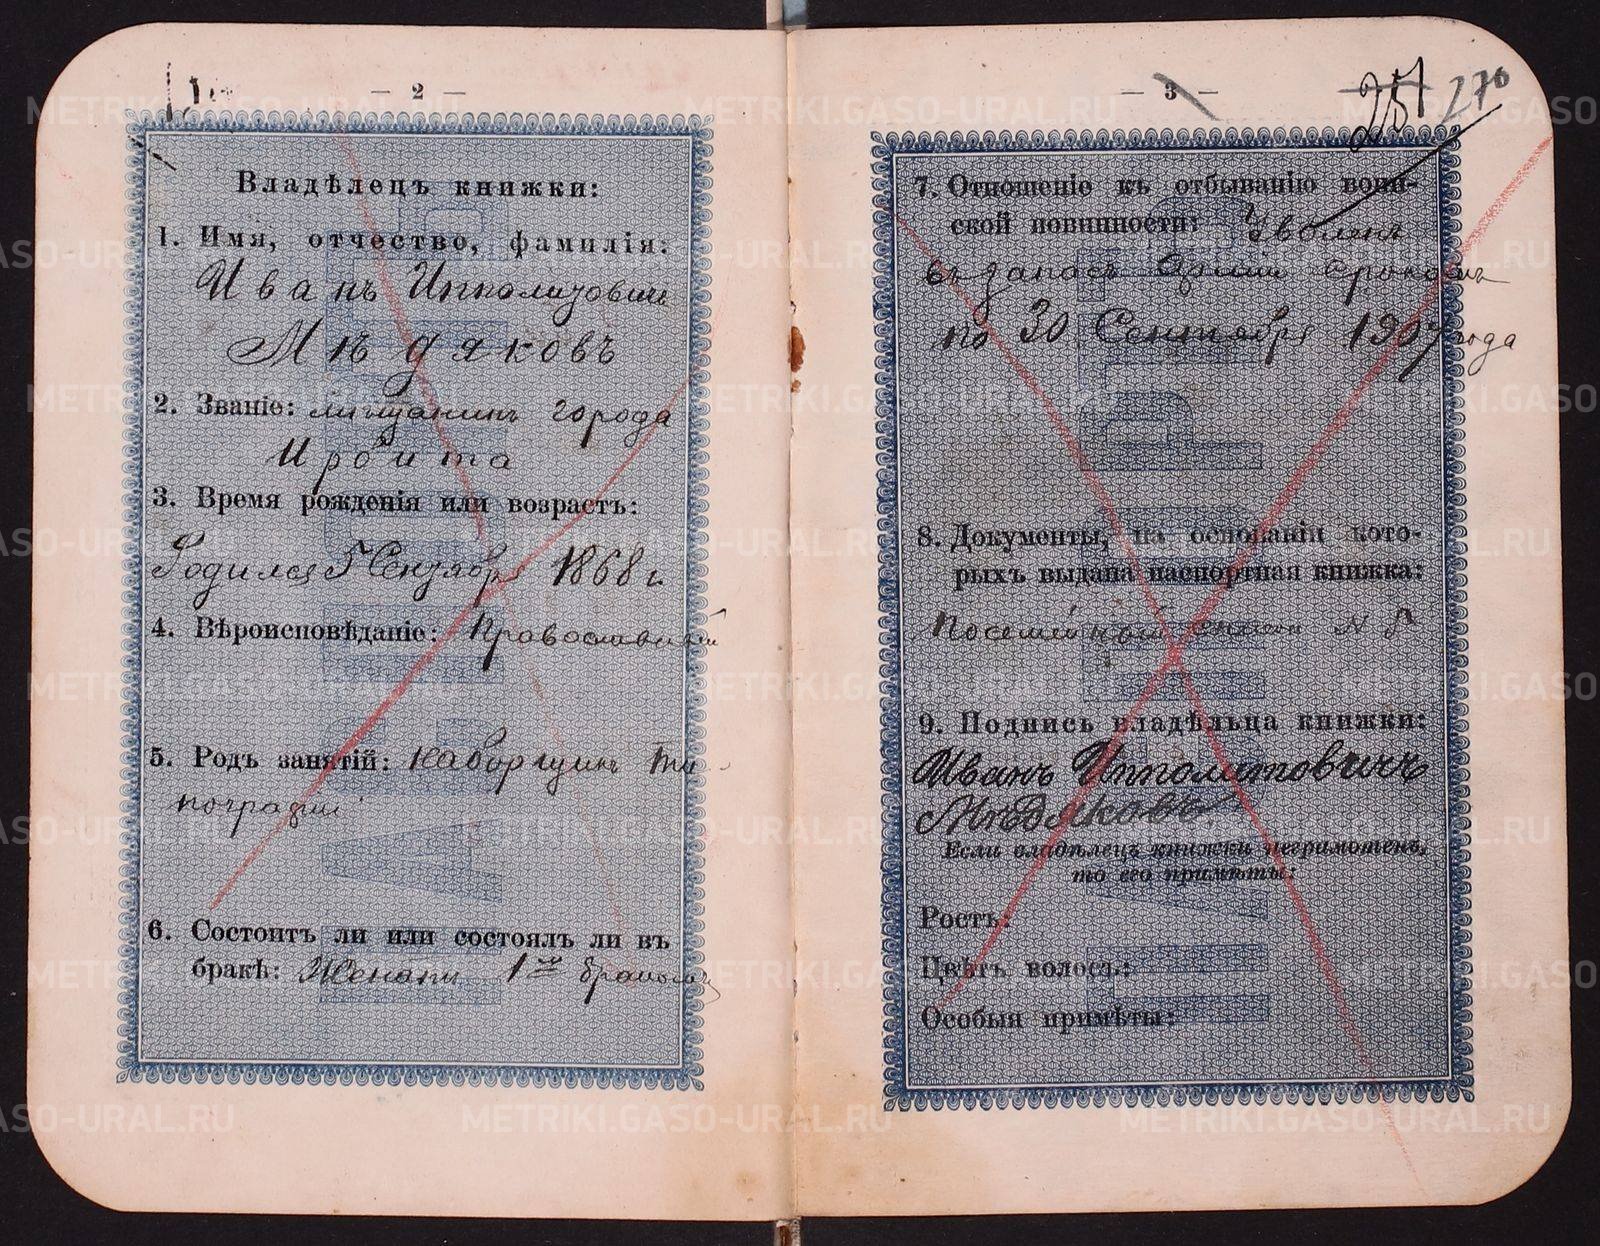 — 2 —
Владѣлецъ книжки:
1. Имя, отчество, фамилія:
Иванъ Ипполитовичъ
Мѣдяковъ
2. Званіе: мѣщанинъ города
Ирбита
3. Время рожденія или возрастъ:
Родился 5 Сентября 1868 г.
4. Вѣроисповѣданіе: Православный
5. Родъ занятій: наборщикъ ти-
пографіи
6. Состоитъ ли или состоялъ ли въ
бракѣ: Женатъ 1мъ бракомъ
— 3 —
251 270
7. Отношеніе къ отбыванію воин-
ской повинности: Уволенъ
въ запасъ арміи срокомъ
по 30 Сентября 1907 года
8. Документы, на основаніи кото-
рыхъ выдана паспортная книжка:
Посемейный списокъ №
9. Подпись владѣльца книжки:
Иванъ Ипполитовичъ
Мѣдяковъ.
Если владѣлецъ книжки неграмотенъ,
то его примѣты:
Ростъ:
Цвѣтъ волосъ:
Особыя примѣты:
METRIKI.GASO-URAL.RU